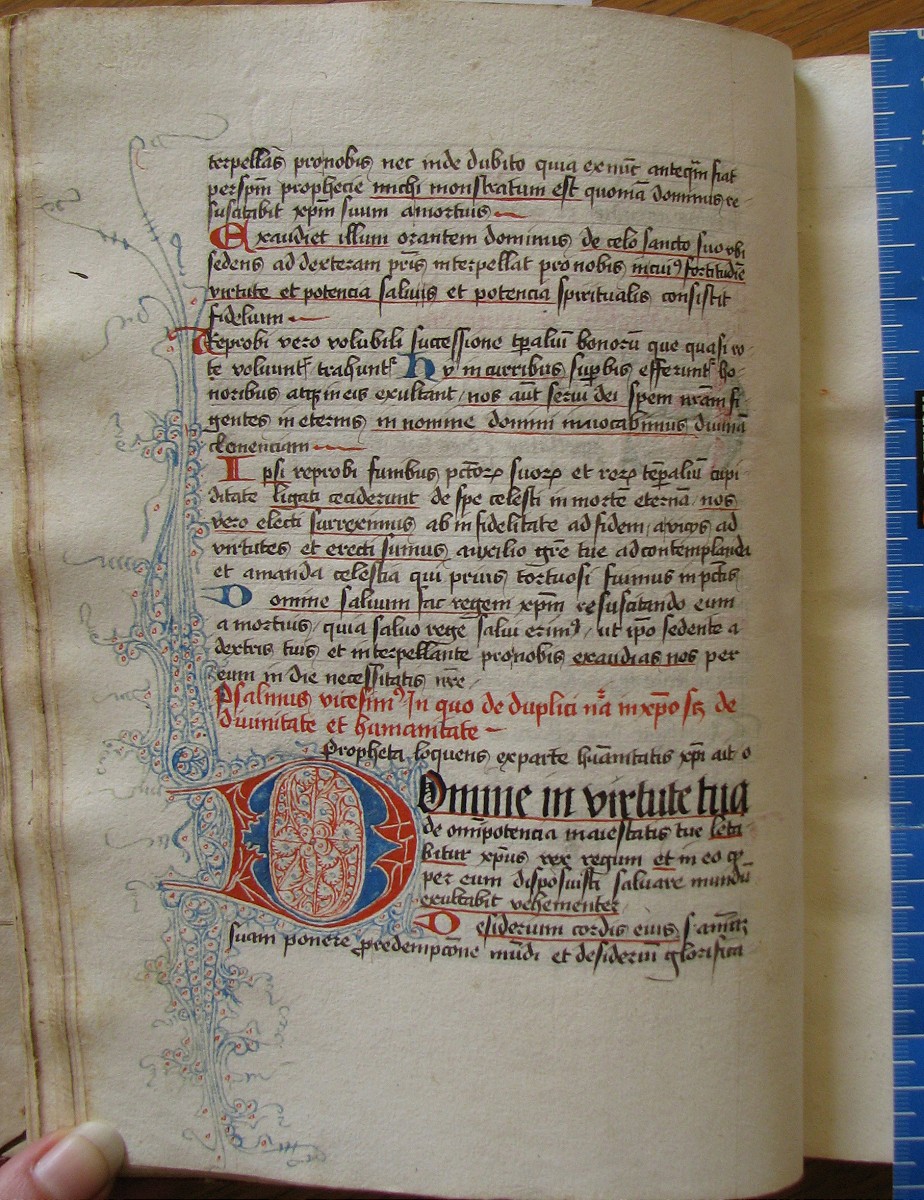 terpellãs pronobis nec inde dubito quia ex nũc anteq̃m fiat
per spm̃ prophecie michi monstratum est quoniã dominus re-
suscitabit xp̃m suum a mortuis
Exaudiet illum orantem dominus de celo sancto suo vbi
sedens ad dexteram pr̃is interpellat pro nobis in cui⁹ fortitudĩe
virtute et potencia saluis et potencia spiritualis consistit
fidelium
Reprobi vero volubili successione tp̃aliũ bonorũ que quasi ro-
te voluunt᷑ trahunt᷑ Hy in curribus sup̱bis efferunt᷑ ho-
noribus atqꝫ in eis exultant / nos aũt serui dei spem nr̃am fi-
gentes in eternis in nomine domini inuocabimus diuinã
clemenciam
Ipsi reprobi funibus pctõꝝ suoꝝ et reꝝ tẽp̱aliũ cupi-
ditate ligati ceciderunt de spe celesti in morte eternã / nos
vero electi surreximus ab infidelitate ad fidem / a vicijs ad
virtutes et erecti sumus auxilio gr̃e tue ad contemplanda
et amanda celestia qui prius tortuosi fuimus in pctĩs
Domine saluum fac regem xp̃m resuscitando eum
a mortuis / quia saluo regẽ salui erim⁹ / ut ip̃o sedente a
dextris tuis et interpellante pro nobis exaudias nos per
eum in die necessitatis nr̃e
Psalmus vicesim⁹ In quo de duplici nã in xp̃o scꝫ de
diuinitate et humanitate
Propheta loquens ex parte hũanitatis xp̃i ait o
Domine in virtute tua
de om̃ipotencia maiestatis tue leta-
bitur xp̃us rex regum et in eo qꝫ
per eum disposuisti saluare mundũ
exultabit vehementer
Desiderium cordis eius s. aĩam
suam ponere p redempcõne mũdi et desideriũ glorifica